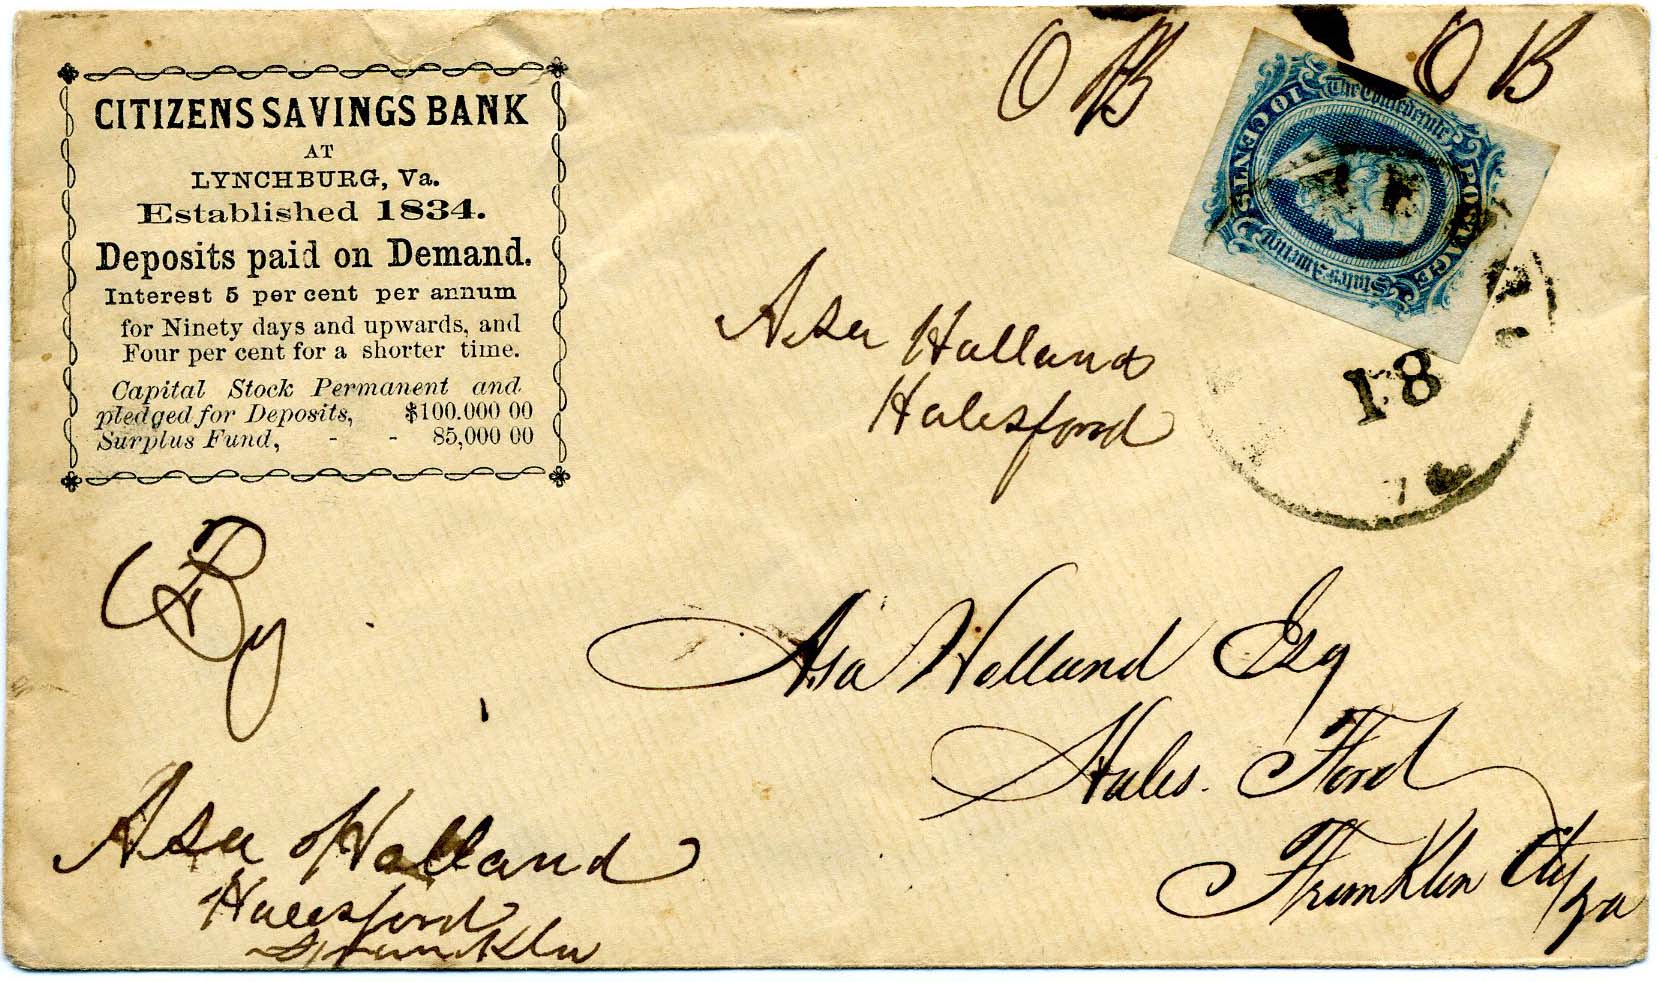 CITIZENS SAVINGS BANK
AT
LYNCHBURG, Va.
Established 1834.
Deposits paid on Demand.
Interest 5 per cent per annum
for Ninety days and upwards, and
Four per cent for a shorter time.
Capital Stock Permanent and
pledged for Deposits, $100.000 00
Surplus Fund, - - 85,000 00
O B
O B
The Confederate
States America
POSTAGE
10 CENTS
18
Asa Holland
Halesford
By
Asa Holland Esq
Hales. Ford
Franklin Cty
Va
Asa Holland
Halesford
Franklin